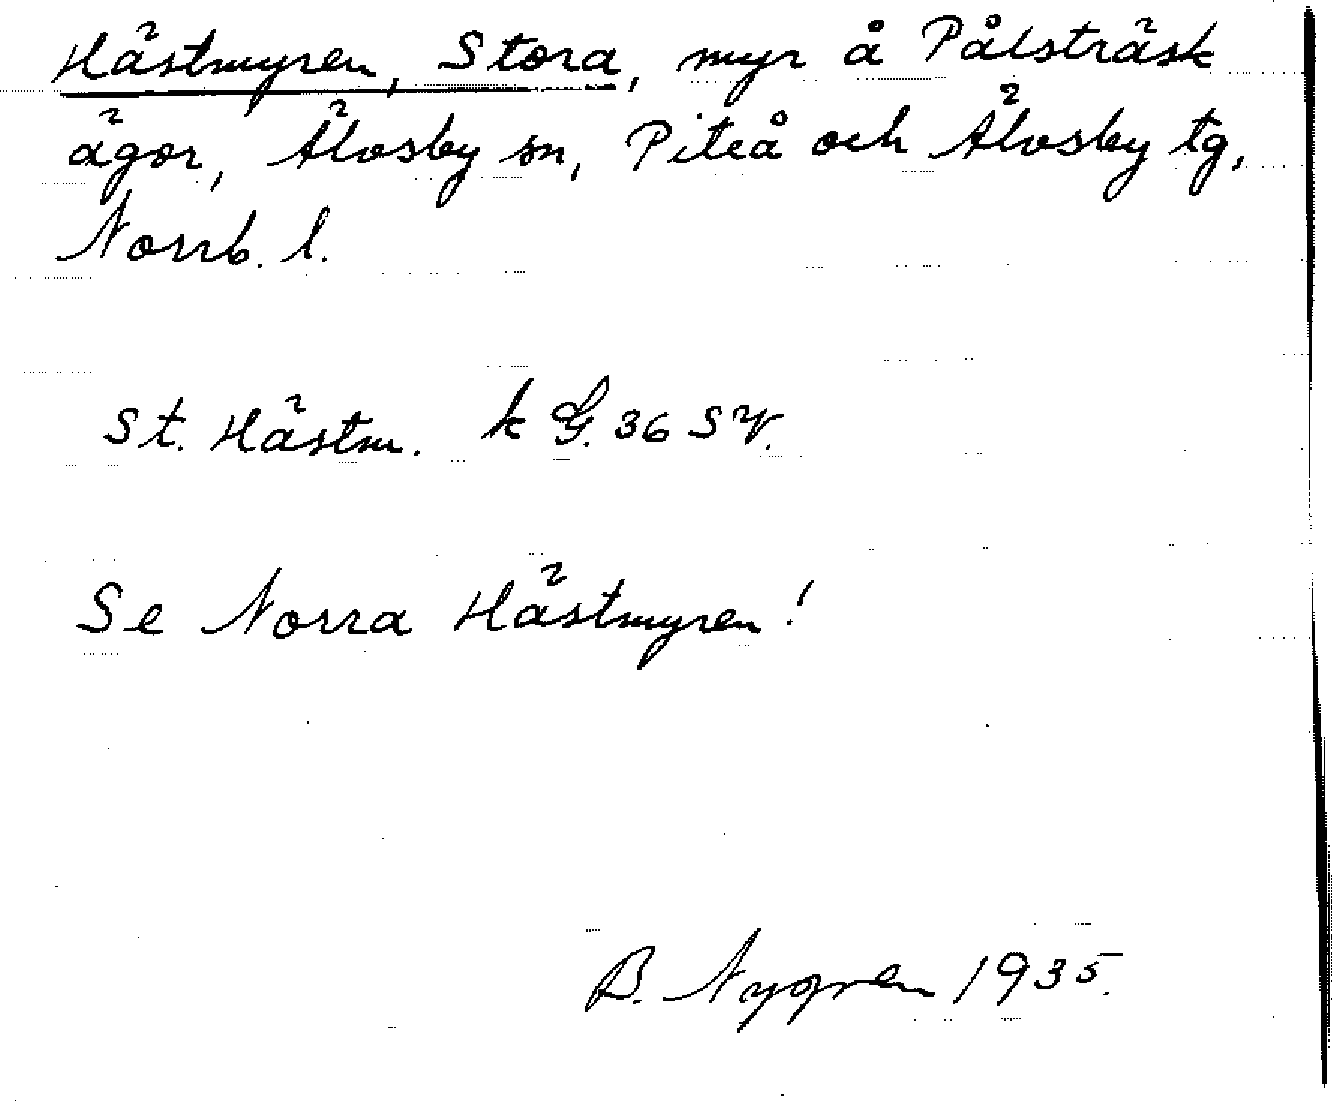 Hästmyren, Stora, myr å Pålsträsk
ägor, Älvsby sn, Piteå och Älvsby tg,
Norrb. l.
St. Hästm. k G. 36 SV.
Se Norra Hästmyren!
B. Nygren 1935.